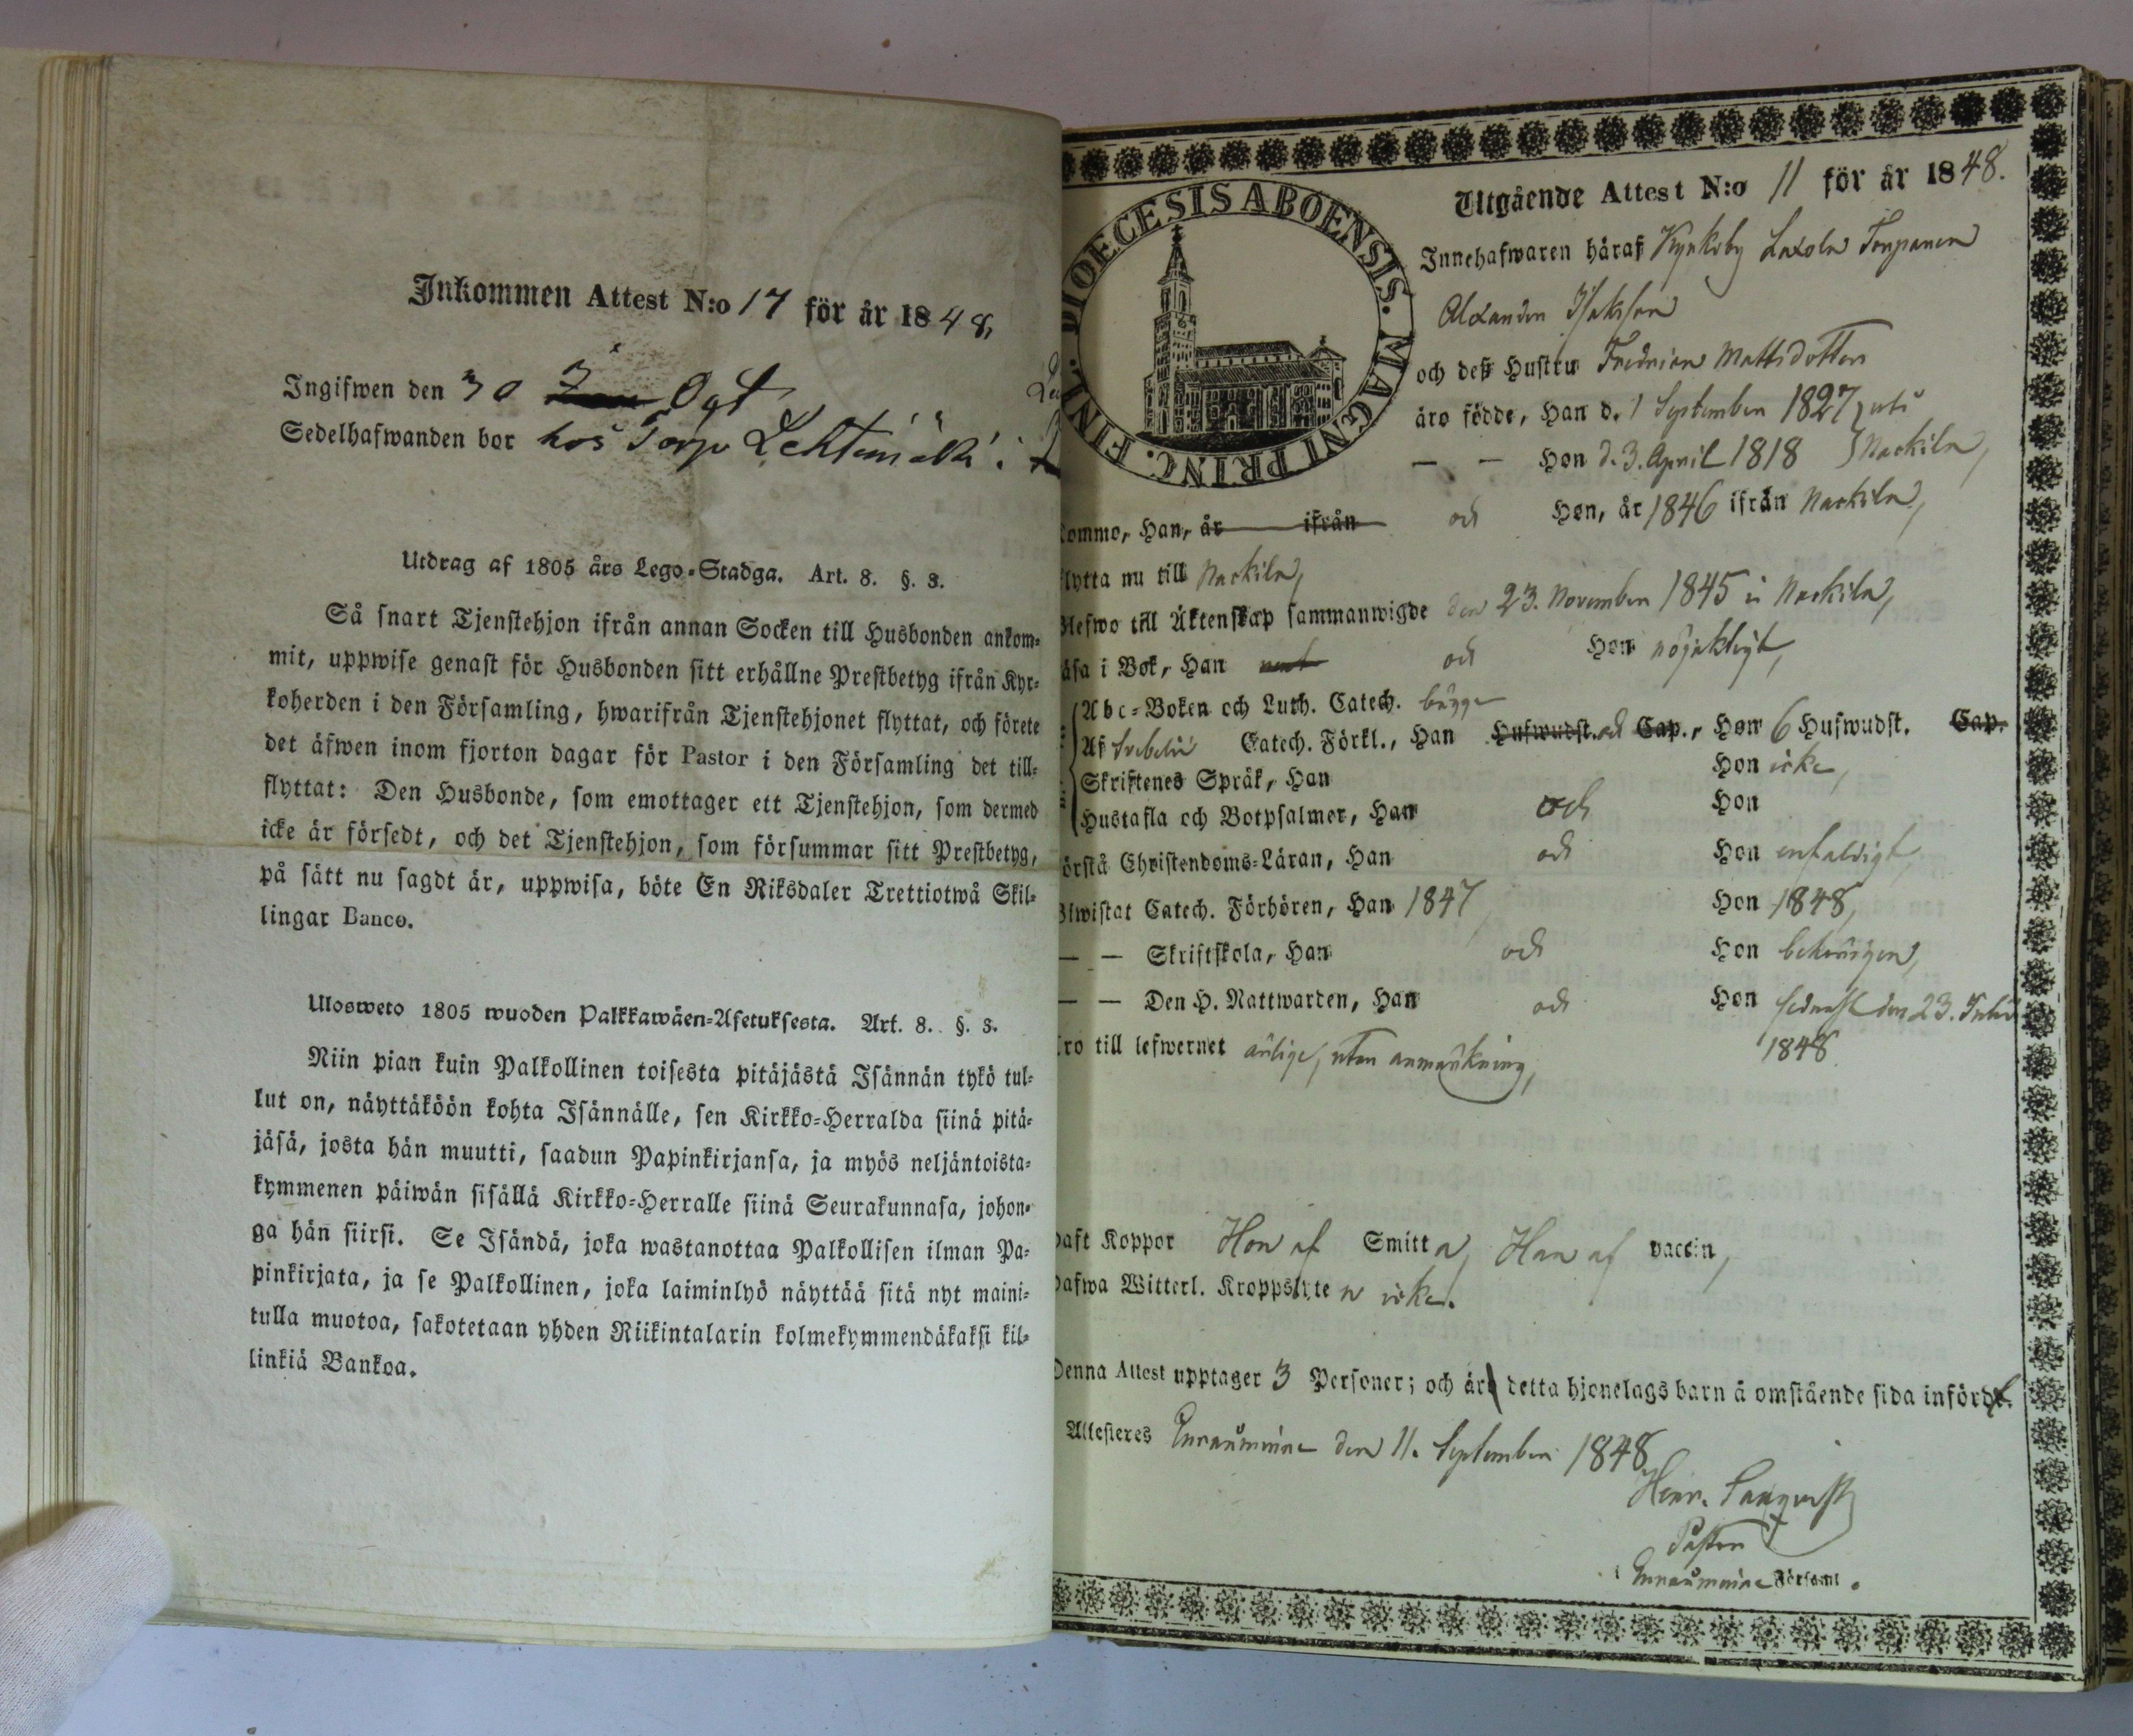 Inkommen Attest N:o 17 för år 1848,
Ingifwen den 30 Ogt
Sedelhafwanden bor hos Torp Lehtimäki i
Utdrag af 1805 års Lego-Stadga. Art. 8. §. 3.
Så snart Tjenstehjon ifrån annan Socken till Husbonden ankom-
mit, uppwise genast för Husbonden sitt erhållne Prestbetyg ifrån Kyr-
koherden i den Församling, hwarifrån Tjenstehjonet flyttat, och förete
det äfwen inom fjorton dagar för Pastor i den Församling det till-
flyttat: Den Husbonde, som emottager ett Tjenstehjon, som dermed
icke är försedt, och det Tjenstehjon, som försummar sitt Prestbetyg,
på sätt nu sagdt är, uppwisa, böte En Riksdaler Trettiotwå Skil-
lingar Banco.
Ulosweto 1805 wuoden Palkkawäen-Asetuksesta. Art. 8. §. 3.
Niin pian kuin Palkollinen toisesta pitäjästä Isännän tykö tul-
lut on, näyttäköön kohta Isännälle, sen Kirkko-Herralda siinä pitä-
jäsä, josta hän muutti, saadun Papinkirjansa, ja myös neljäntoista-
kymmenen päiwän sisällä Kirkko-Herralle siinä Seurakunnasa, johon-
ga hän siirsi. Se Isändä, joka wastanottaa Palkollisen ilman Pa-
pinkirjata, ja se Palkollinen, joka laiminlyö näyttää sitä nyt maini-
tulla muotoa, sakotetaan yhden Riikintalarin kolmekymmendäkaksi kil-
linkiä Bankoa.
FINL. DIOECESIS ABOENSIS. MAGNI PRINC.
Utgående Attest N:o 11 för år 1848.
Innehafwaren häraf Kynkoby Laxola Torparen
Alexander Isaksson
och deß Hustru Fredrica Mattsdotter
äro födde, Han d. 1 September 1827 uti
— — Hon d. 3. April 1818 Nackila,
kommo, Han, år ifrån och Hon, år 1846 ifrån Nackila,
flytta nu till Nackila,
Blefwo till Äktenskap sammanwigde den 23. November 1845 i Nackila,
läsa i Bok, Han och Hon nöjaktigt,
Abc-Boken och Luth. Catech. bägge
Af Svebelii Catech. Förkl., Han Hufwudst. och Cap., Hon 6 Hufwudst. Cap.
Skriftenes Språk, Han Hon icke,
Hustafla och Botpsalmer, Han och Hon
förstå Christendoms-Läran, Han och Hon enfaldigt,
Biwistat Catech. Förhören, Han 1847 Hon 1848,
— — Skriftskola, Han och Hon behörigen,
— — Den H. Nattwarden, Han och Hon sednast den 23. Julii
1848.
äro till lefwernet ärlige, utan anmärkning,
haft Koppor Hon af Smitta, Han af vaccin,
hafwa Witterl. Kroppslyten icke.
Denna Attest upptager 3 Personer; och äro detta hjonelags barn å omstående sida införde.
Attesteres Euraåminne den 11. September 1848
Henr.
Pastor
i Euraåminne Församl.